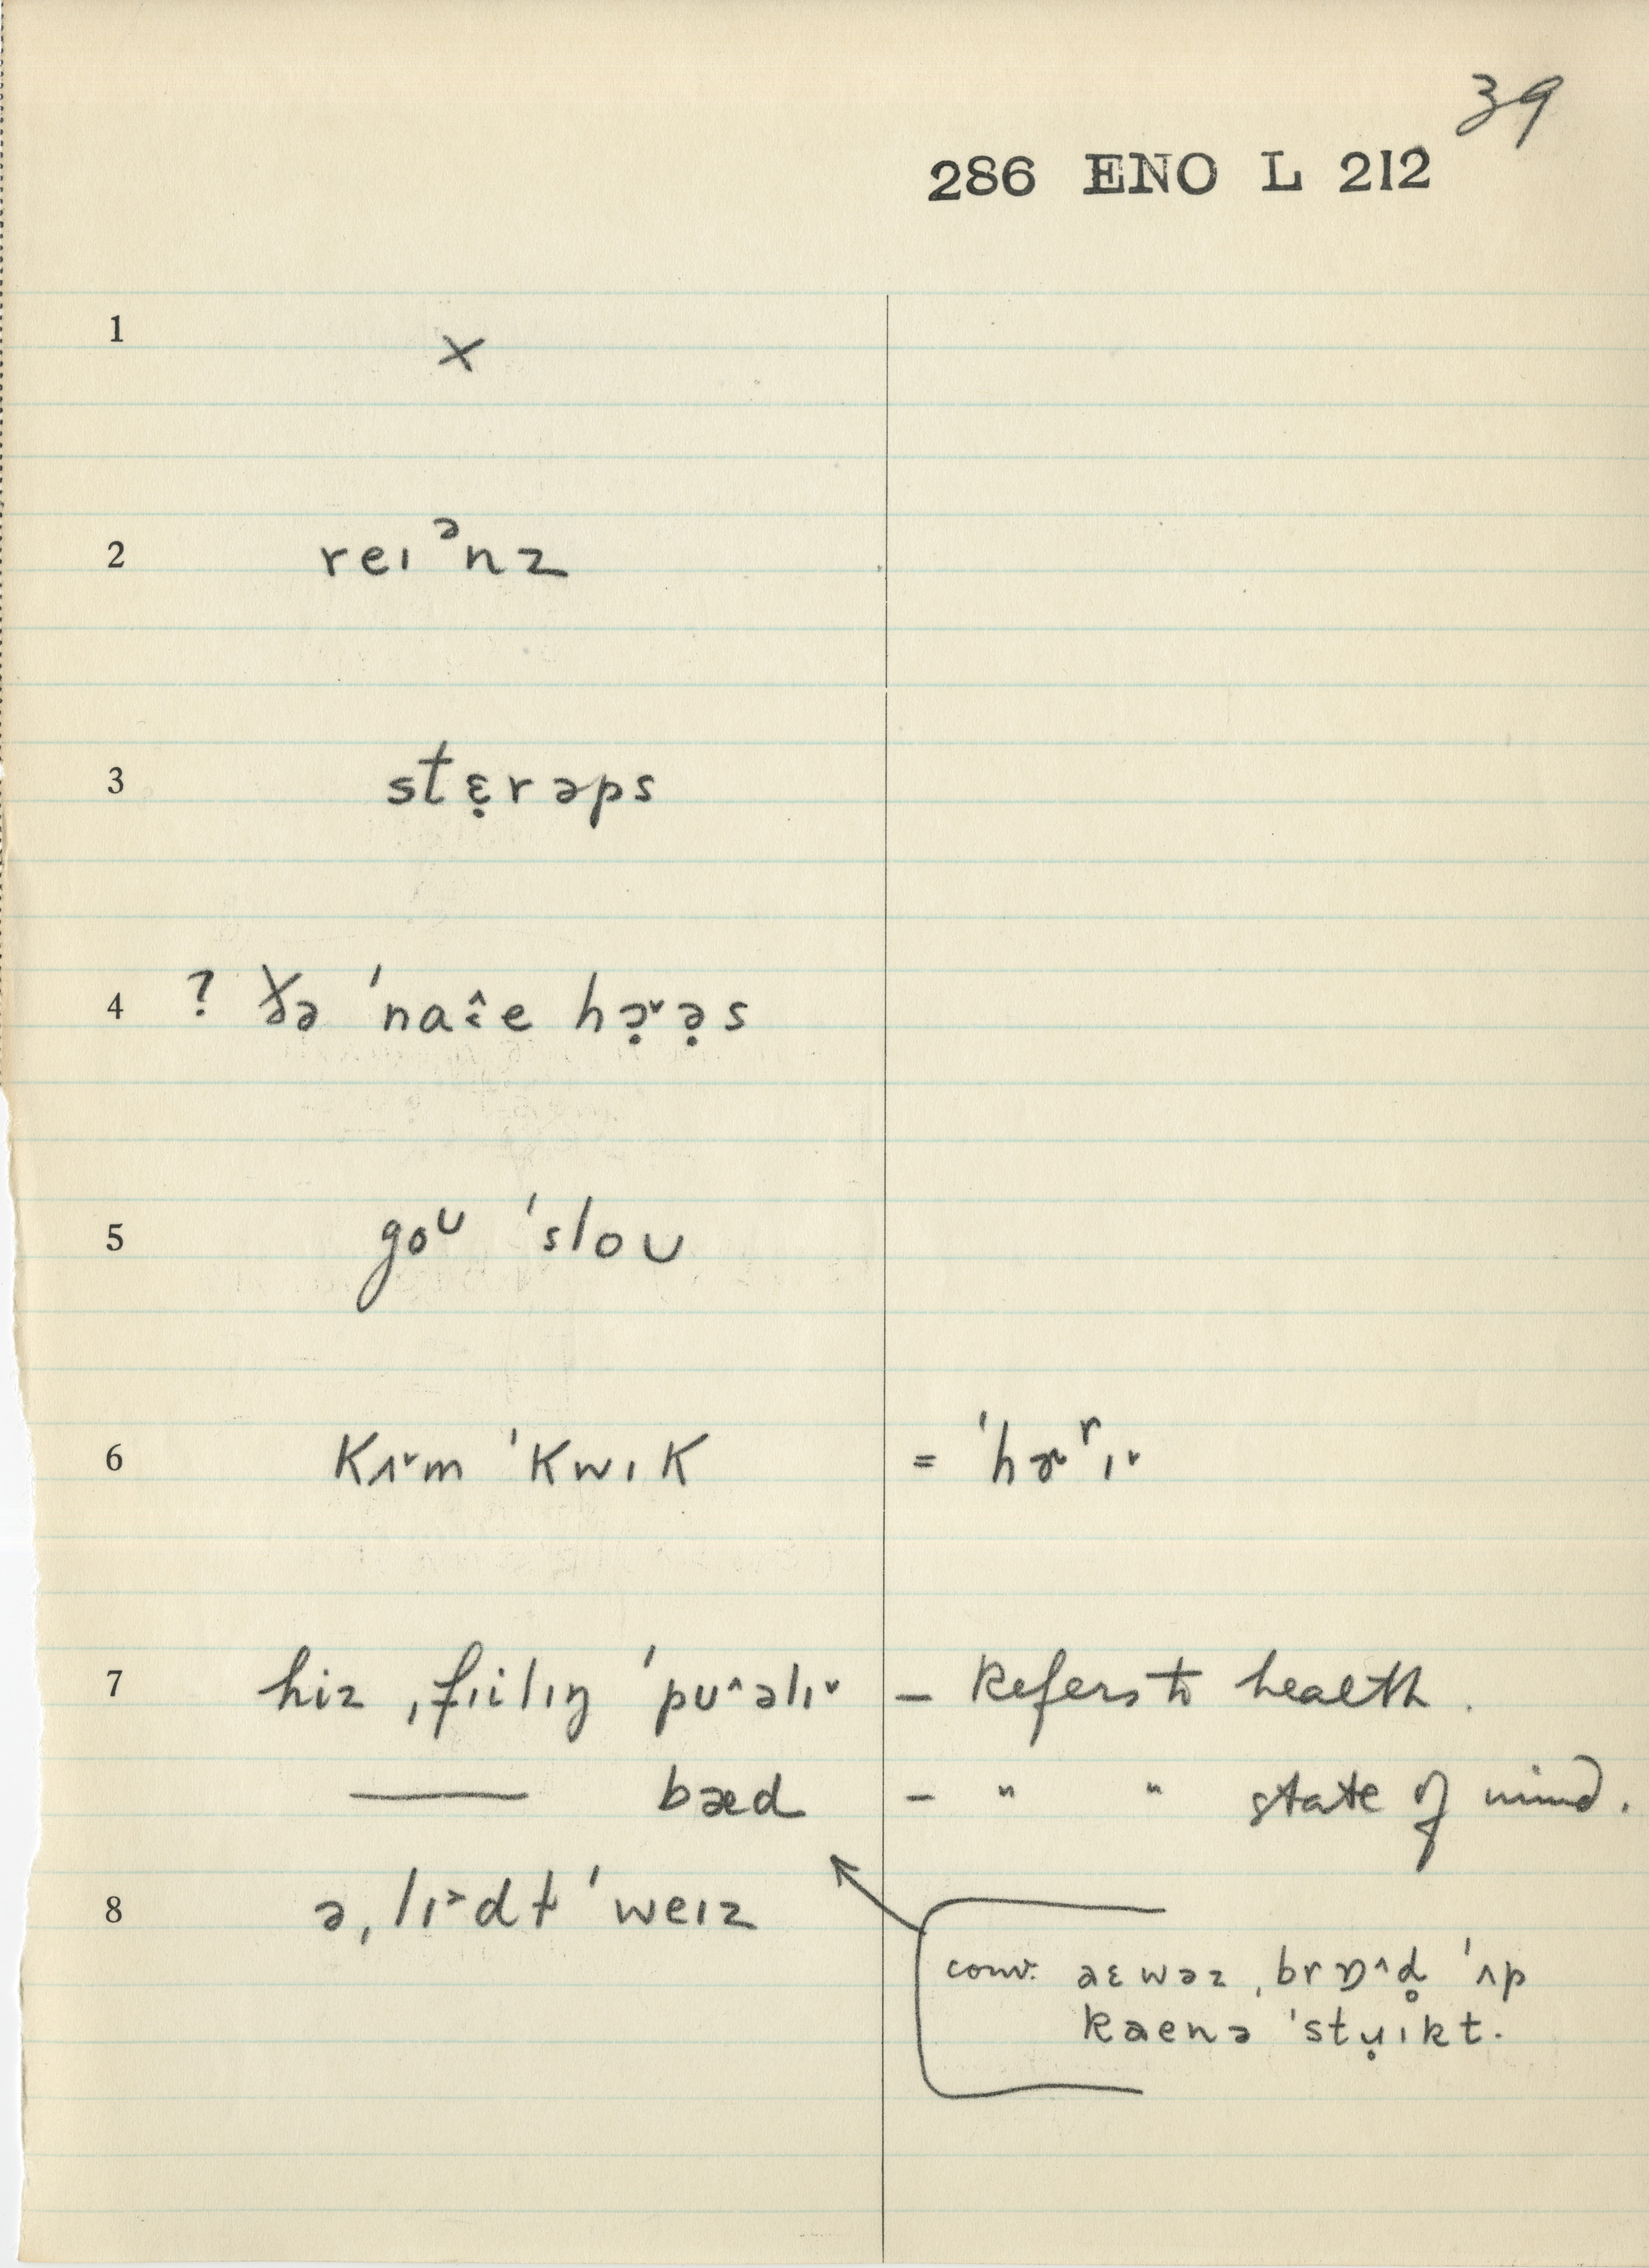 39
286 ENO L 212
1 ×
2 reɪᵊnz
3 stɛ̣rəps
4 ? ðə ˈnaɛ̂e hə̣˞ə̣s
5 goᶷ ˈsloʊ
6 kʌ˅m ˈkwɪk = ˈhɚʳɪ˅
7 hiz ˌfɪilɪŋ ˈpʊ^əlɪ˅ – Refers to health.
—— bæd – " " state of mind.
8 ə ˌlɪ˃dt̵ ˈweɪz
conv: aɛwəz ˌbrɒ^d̥ ˈʌp
kaenə ˈstṛɪkt.